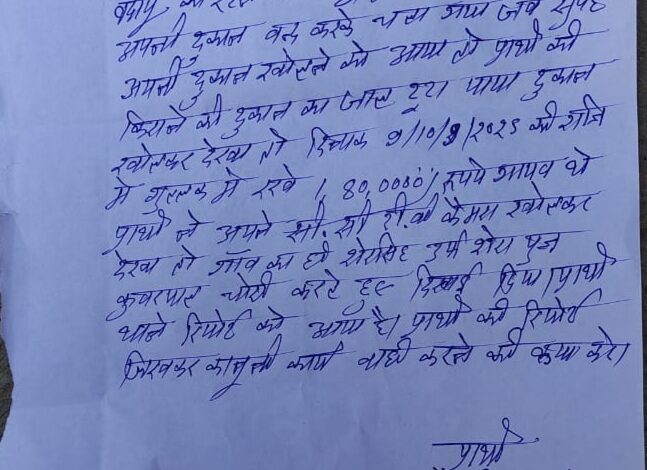 अपनी दुकान बन्द करके चला गया जब सुबह
अपनी दुकान खोलने को आया तो प्रार्थी की
किराने की दुकान का जाल टूटा पाया दुकान
खोलकर देखा तो दिनांक 9/10/9/2025 की रात्रि
मे गुल्लक मे रखे 1,80,0000/ रूपये गायब थे
प्रार्थी ने अपने सी. सी टी.वी कैमरा खोलकर
देखा तो गाँव का ही शेरसिह उर्फ शेरा पुत्र
कुवरपाल चोरी करते हुए दिखाई दिया। प्रार्थी
थाने रिपोर्ट को आया है। प्रार्थी की रिपोर्ट
लिखकर कानूनी कार्य वाही करने की कृपा करे।
प्रार्थी